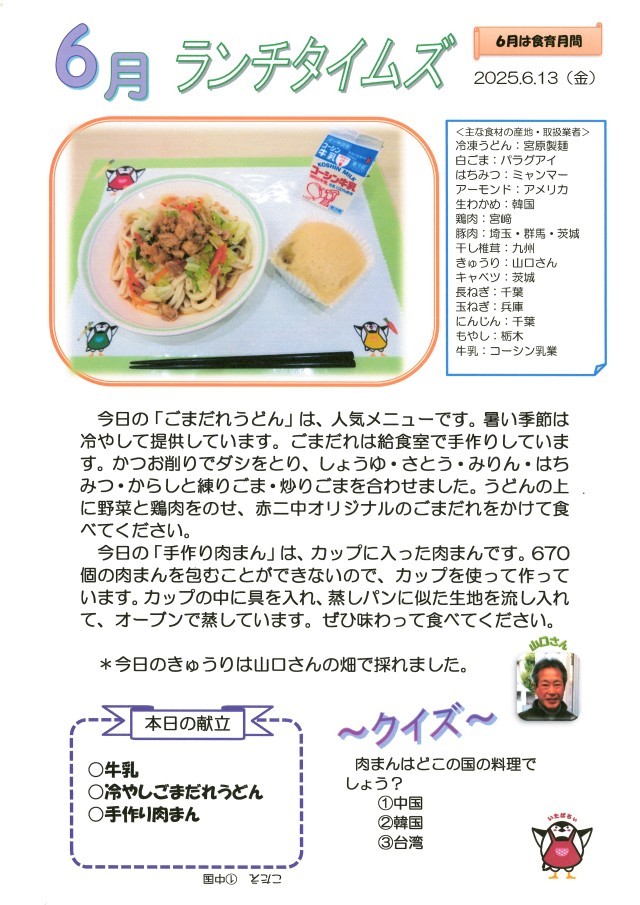 6月 ランチタイムズ
6月は食育月間
2025.6.13（金）
コーシン牛乳
KOSHIN MILK
コーシン牛乳
＜主な食材の産地・取扱業者＞
冷凍うどん：宮原製麺
白ごま：パラグアイ
はちみつ：ミャンマー
アーモンド：アメリカ
生わかめ：韓国
鶏肉：宮﨑
豚肉：埼玉・群馬・茨城
干し椎茸：九州
きゅうり：山口さん
キャベツ：茨城
長ねぎ：千葉
玉ねぎ：兵庫
にんじん：千葉
もやし：栃木
牛乳：コーシン乳業
今日の「ごまだれうどん」は、人気メニューです。暑い季節は
冷やして提供しています。ごまだれは給食室で手作りしていま
す。かつお削りでダシをとり、しょうゆ・さとう・みりん・はち
みつ・からしと練りごま・炒りごまを合わせました。うどんの上
に野菜と鶏肉をのせ、赤二中オリジナルのごまだれをかけて食
べてください。
今日の「手作り肉まん」は、カップに入った肉まんです。670
個の肉まんを包むことができないので、カップを使って作って
います。カップの中に具を入れ、蒸しパンに似た生地を流し入れ
て、オーブンで蒸しています。ぜひ味わって食べてください。
＊今日のきゅうりは山口さんの畑で採れました。
山口さん
本日の献立
○牛乳
○冷やしごまだれうどん
○手作り肉まん
～クイズ～
肉まんはどこの国の料理で
しょう？
①中国
②韓国
③台湾
いたばちぃ
こたえ ①中国